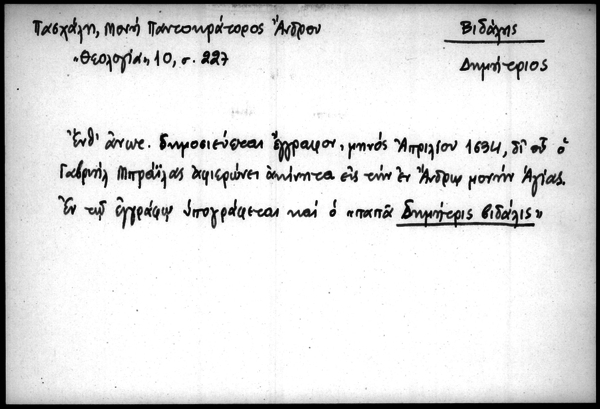 Πασχάλη, Μονή Παντοκράτορος Ἄνδρου
«Θεολογία» 10, σ. 227
Βιδάλης
Δημήτριος
Ἔνθ' ἄνωτ. δημοσιεύεται ἔγγραφον, μηνός Ἀπριλίου 1634, δι' οὗ ὁ
Γαβριήλ Μπραΐλας ἀφιερώνει ἀκίνητα εἰς τήν ἐν Ἄνδρῳ μονήν Ἁγίας.
Ἐν τῷ ἐγγράφῳ ὑπογράφεται καί ὁ «παπᾶ Δημήτρις βιδάλις»